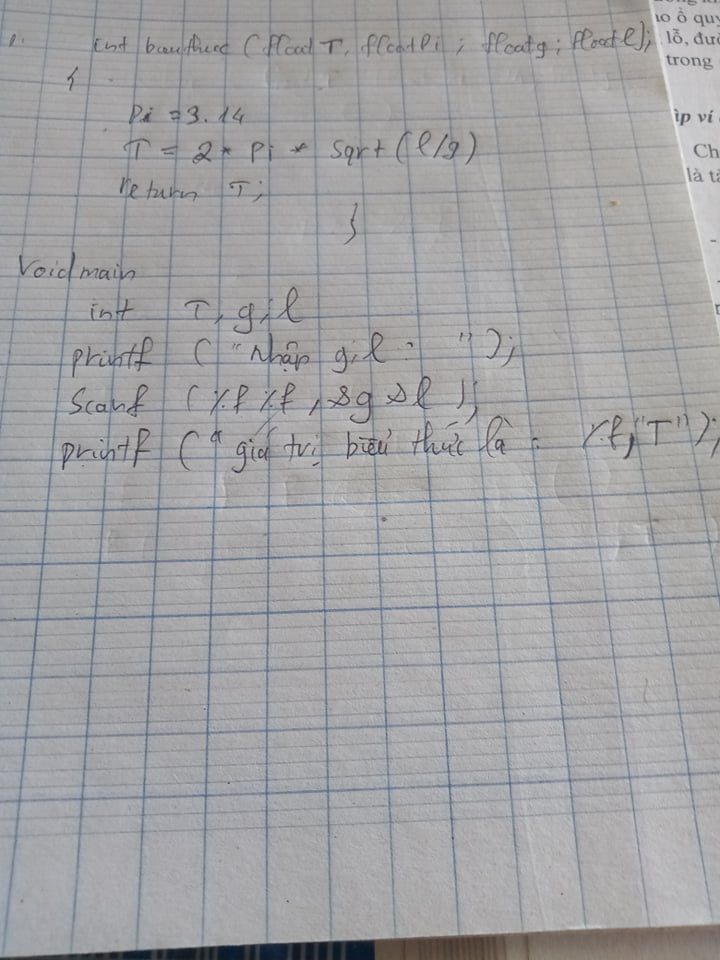 1. int bieuthuc (float T, float Pi ; float g ; float l);
{
Pi = 3.14
T = 2 * Pi * Sqrt (l/g)
return T;
}
Void main
int T, g, l
printf ("Nhập g, l : ");
Scanf (%f %f, &g &l );
printf (" giá trị biểu thức là = %f, "T");
ao ồ quy
lỗ, đượ
trong
ìp ví
Ch
là tá